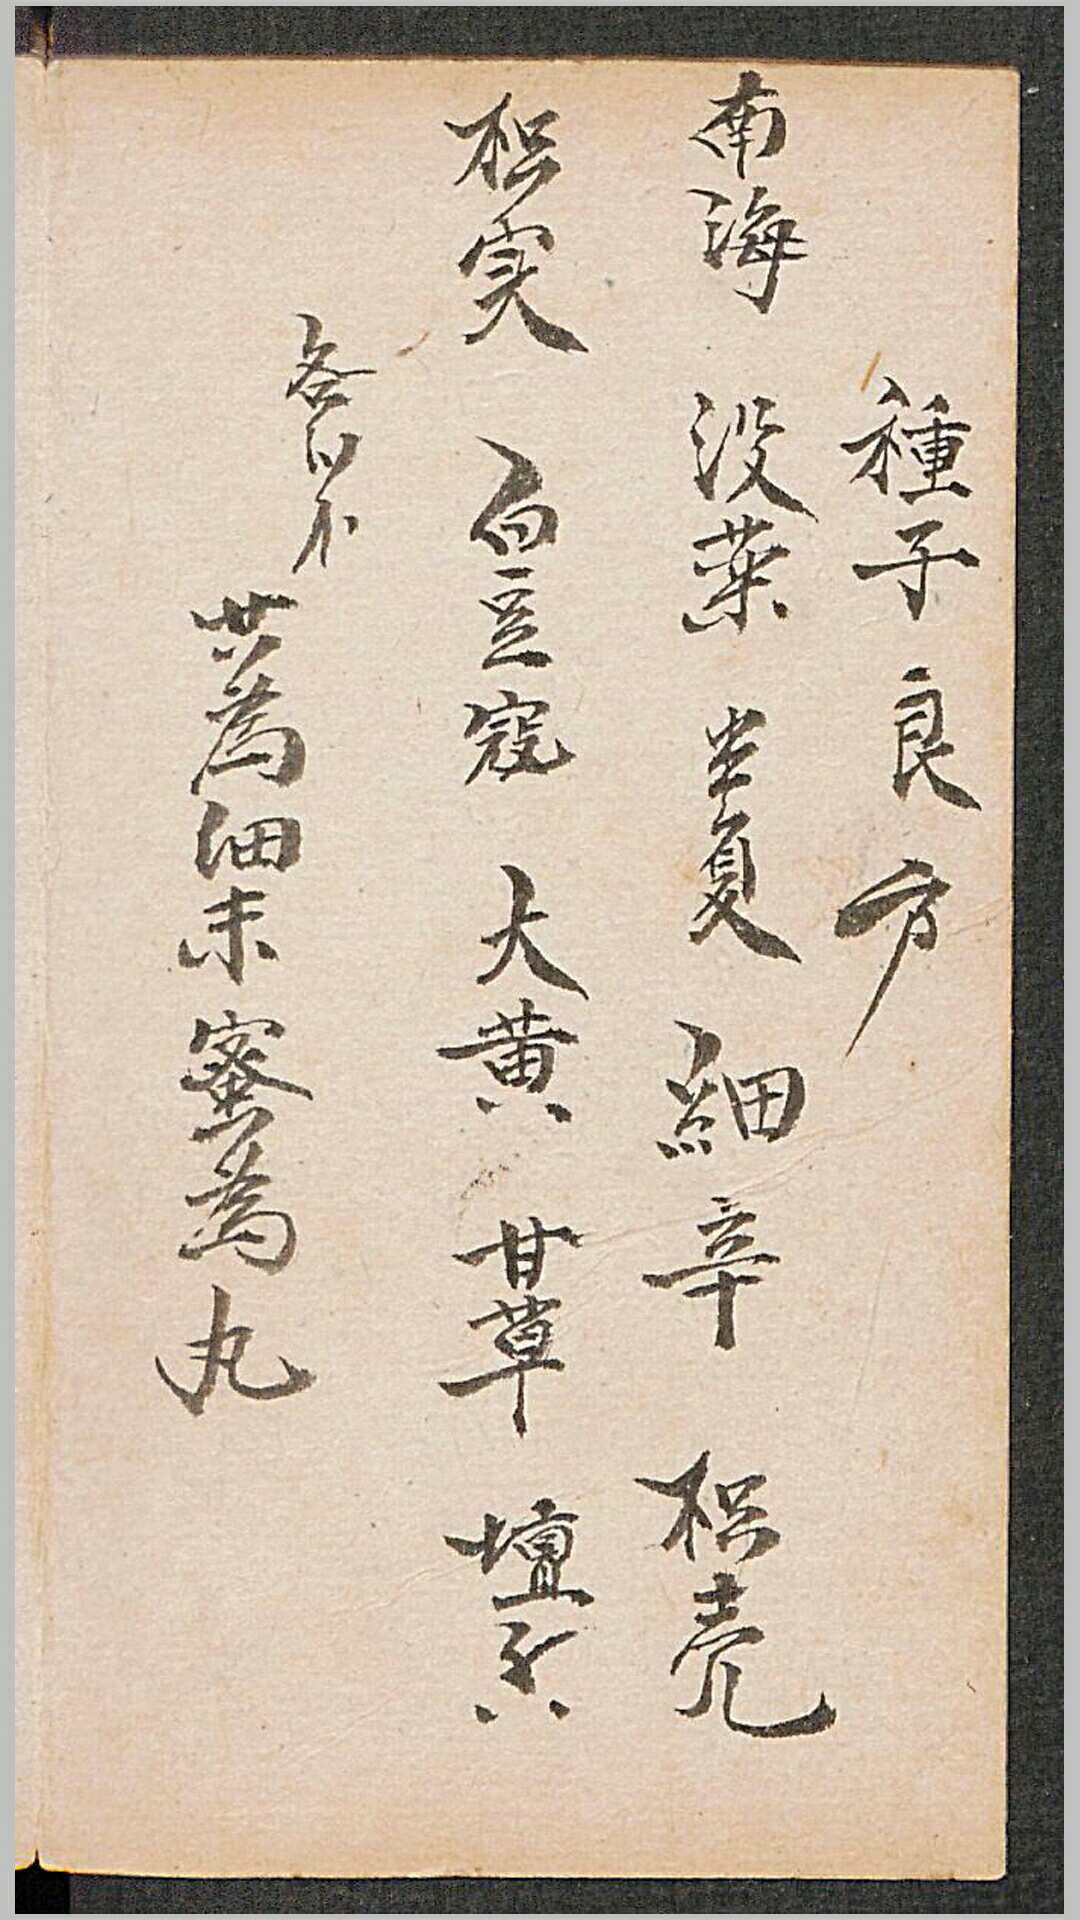 種子良方
南海 没薬 半夏 細辛 枳壳
枳实 白豆寇 大黄 甘草 壇香
各
共為細末蜜為丸